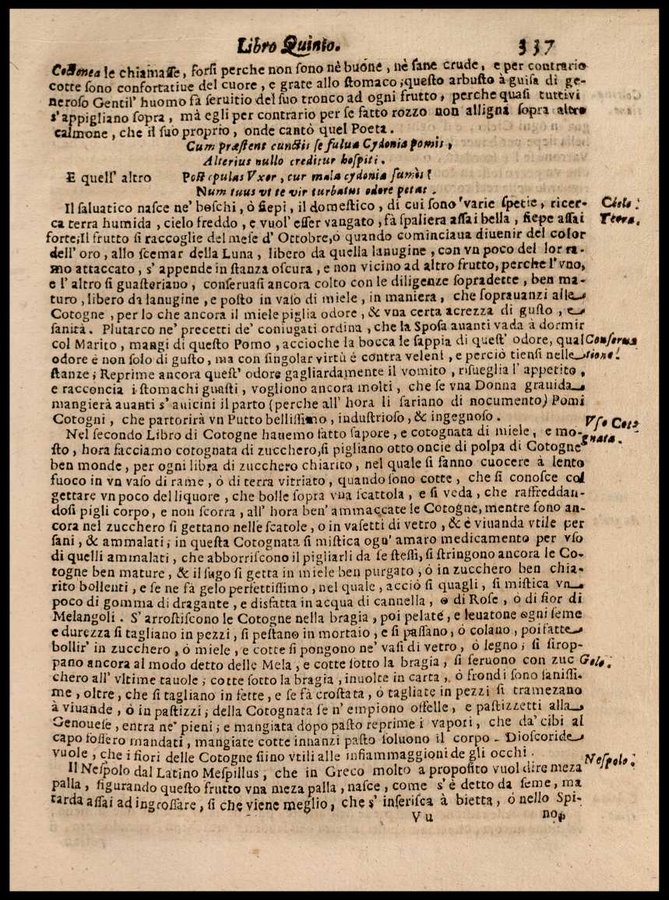 Libro Quinto. 337
Cotonea le chiamasse, forsi perche non sono nè buone, nè sane crude, e per contrario
cotte sono confortatiue del cuore, e grate allo stomaco; questo arbusto à guisa di ge-
neroso Gentil' huomo fà seruitio del suo tronco ad ogni frutto, perche quasi tuttivi
s'appigliano sopra, mà egli per contrario per se fatto rozzo non alligna sopra altro
calmone, che il suo proprio, onde cantò quel Poeta.
Cum præstent cunctis se fulua Cydonia pomis,
Alterius nullo creditur hospiti.
E quell' altro Postquplas Vxor, cur mala cydonia sumis?
Num tuus vt te vir turbatus odore petat.
Il saluatico nasce ne' boschi, ò siepi, il domestico, di cui sono varie spetie, ricer-
ca terra humida, cielo freddo, e vuol' esser vangato, fà spaliera assai bella, siepe assai
forte; Il frutto si raccoglie del mese d' Ottobre, ò quando cominciaua diuenir del color
dell' oro, allo scemar della Luna, libero da quella lanugine, con vn poco del lor ra-
mo attaccato, s' appende in stanza oscura, e non vicino ad altro frutto, perche l'vno,
e l' altro si guasteriano, conseruasi ancora colto con le diligenze sopradette, ben ma-
turo, libero da lanugine, e posto in vaso di miele, in maniera, che soprauanzi alle
Cotogne, per lo che ancora il miele piglia odore, & vna certa acrezza di gusto, e
sanità. Plutarco ne' precetti de' coniugati ordina, che la Sposa auanti vada à dormir
col Marito, mangi di questo Pomo, accioche la bocca le sappia di quest' odore, qual
odore è non solo di gusto, ma con singolar virtù è contra veleni, e perciò tiensi nelle
stanze; Reprime ancora quest' odore gagliardamente il vomito, risueglia l' appetito,
e racconcia i stomachi guasti, vogliono ancora molti, che se vna Donna grauida
mangierà auanti s' auicini il parto (perche all' hora li sariano di nocumento) Pomi
Cotogni, che partorirà vn Putto bellissimo, industrioso, & ingegnoso.
Nel secondo Libro di Cotogne hauemo fatto sapore, e cotognata di miele, e mo-
sto, hora facciamo cotognata di zucchero, si pigliano otto oncie di polpa di Cotogne
ben monde, per ogni libra di zucchero chiarito, nel quale si fanno cuocere à lento
fuoco in vn vaso di rame, ò di terra vitriato, quando sono cotte, che si conosce col
gettare vn poco del liquore, che bolle sopra vna scattola, e si veda, che raffreddan-
dosi pigli corpo, e non scorra, all' hora ben' ammaccate le Cotogne, mentre sono an-
cora nel zucchero si gettano nelle scatole, o in vasetti di vetro, & è viuanda vtile per
sani, & ammalati; in questa Cotognata si mistica ogn' amaro medicamento per vso
di quelli ammalati, che abborriscono il pigliarli da se stessi, si stringono ancora le Co-
togne ben mature, & il sugo si getta in miele ben purgato, ò in zucchero ben chia-
rito bollenti, e se ne fà gelo perfettissimo, nel quale, acciò si quagli, si mistica vn
poco di gomma di dragante, e disfatta in acqua di cannella, o di Rose, ò di fior di
Melangoli. S' arrostiscono le Cotogne nella bragia, poi pelate, e leuatone ogni seme
e durezza si tagliano in pezzi, si pestano in mortaio, e si passano, ò colano, poi fatte
bollir' in zucchero, ò miele, e cotte si pongono ne' vasi di vetro, ò legno; si sirop-
pano ancora al modo detto delle Mela, e cotte sotto la bragia, si seruono con zuc
chero all' vltime tauole; cotte sotto la bragia, inuolte in carta, ò frondi sono sanissi-
me, oltre, che si tagliano in fette, e se fà crostata, ò tagliate in pezzi si tramezano
à viuande, ò in pastizzi; della Cotognata se n' empiono offelle, e pastizzetti alla
Genouese, entra ne' pieni; e mangiata dopo pasto reprime i vapori, che da' cibi al
capo fossero mandati, mangiate cotte innanzi pasto soluono il corpo. Dioscoride
vuole, che i fiori delle Cotogne siino vtili alle infiammaggioni de gli occhi.
Il Nespolo dal Latino Mespillus, che in Greco molto a proposito vuol dire meza
palla, figurando questo frutto vna meza palla, nasce, come s' è detto da seme, ma
tarda assai ad ingrossare, si che viene meglio, che s' inserisca à bietta, ò nello Spi-
Vu no,
Cielo:
Terra.
Conserua
tione.
Vso Coto
gnata.
Gelo.
Nespolo.